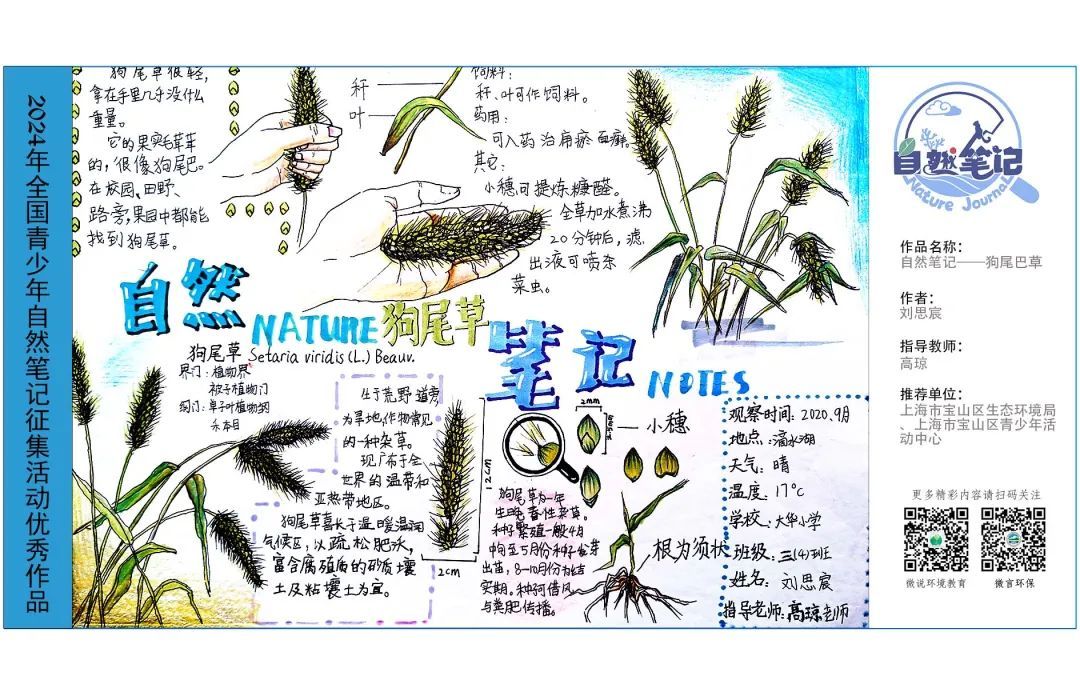 2024年全国青少年自然笔记征集活动优秀作品
狗尾草很轻,
拿在手里几乎没什么
重量。
它的果实毛茸茸
的,很像狗尾巴。
在校园、田野、
路旁,果园中都能
找到狗尾草。
秆
叶
饲料:
秆、叶可作饲料。
药用:
可入药治痈瘀面癣。
其它:
小穗可提炼糠醛。
全草加水煮沸
20分钟后,滤
出液可喷杀
菜虫。
自然
NATURE
狗尾草
笔记
NOTES
狗尾草 Setaria viridis (L.) Beauv.
界门:植物界
被子植物门
纲门:单子叶植物纲
禾本目
生于荒野 道旁
为旱地作物常见
的一种杂草。
现广布于全
世界的温带和
亚热带地区。
狗尾草喜长于温暖湿润
气候区,以疏松肥沃,
富含腐殖质的砂质壤
土及粘壤土为宜。
12cm
2cm
2mm
小穗
狗尾草为一年
生晚春性杂草。
种子繁殖一般4月
中旬至5月份种子发芽
出苗,8-10月份为结
实期。种子可借风
与粪肥传播。
根为须状
观察时间:2020.9月
地点:滴水湖
天气:晴
温度:17°C
学校:大华小学
班级:三(4)班
姓名:刘思宸
指导老师:高琼老师
自然笔记
Nature Journal
作品名称:
自然笔记——狗尾巴草
作者:
刘思宸
指导教师:
高琼
推荐单位:
上海市宝山区生态环境局
、上海市宝山区青少年活
动中心
更多精彩内容请扫码关注
微说环境教育
微言环保